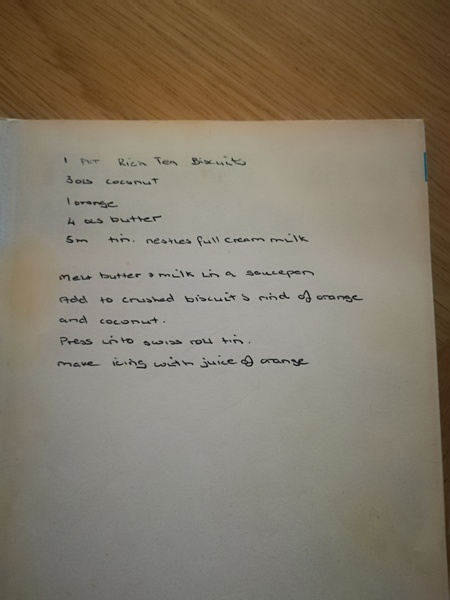 1 PKT Rich Tea Biscuits
3 ozs coconut
1 orange
4 ozs butter
Sm tin. nestles full cream milk
Melt butter & milk in a saucepen
Add to crushed biscuits rind of orange
and coconut.
Press into swiss roll tin.
Make icing with juice of orange